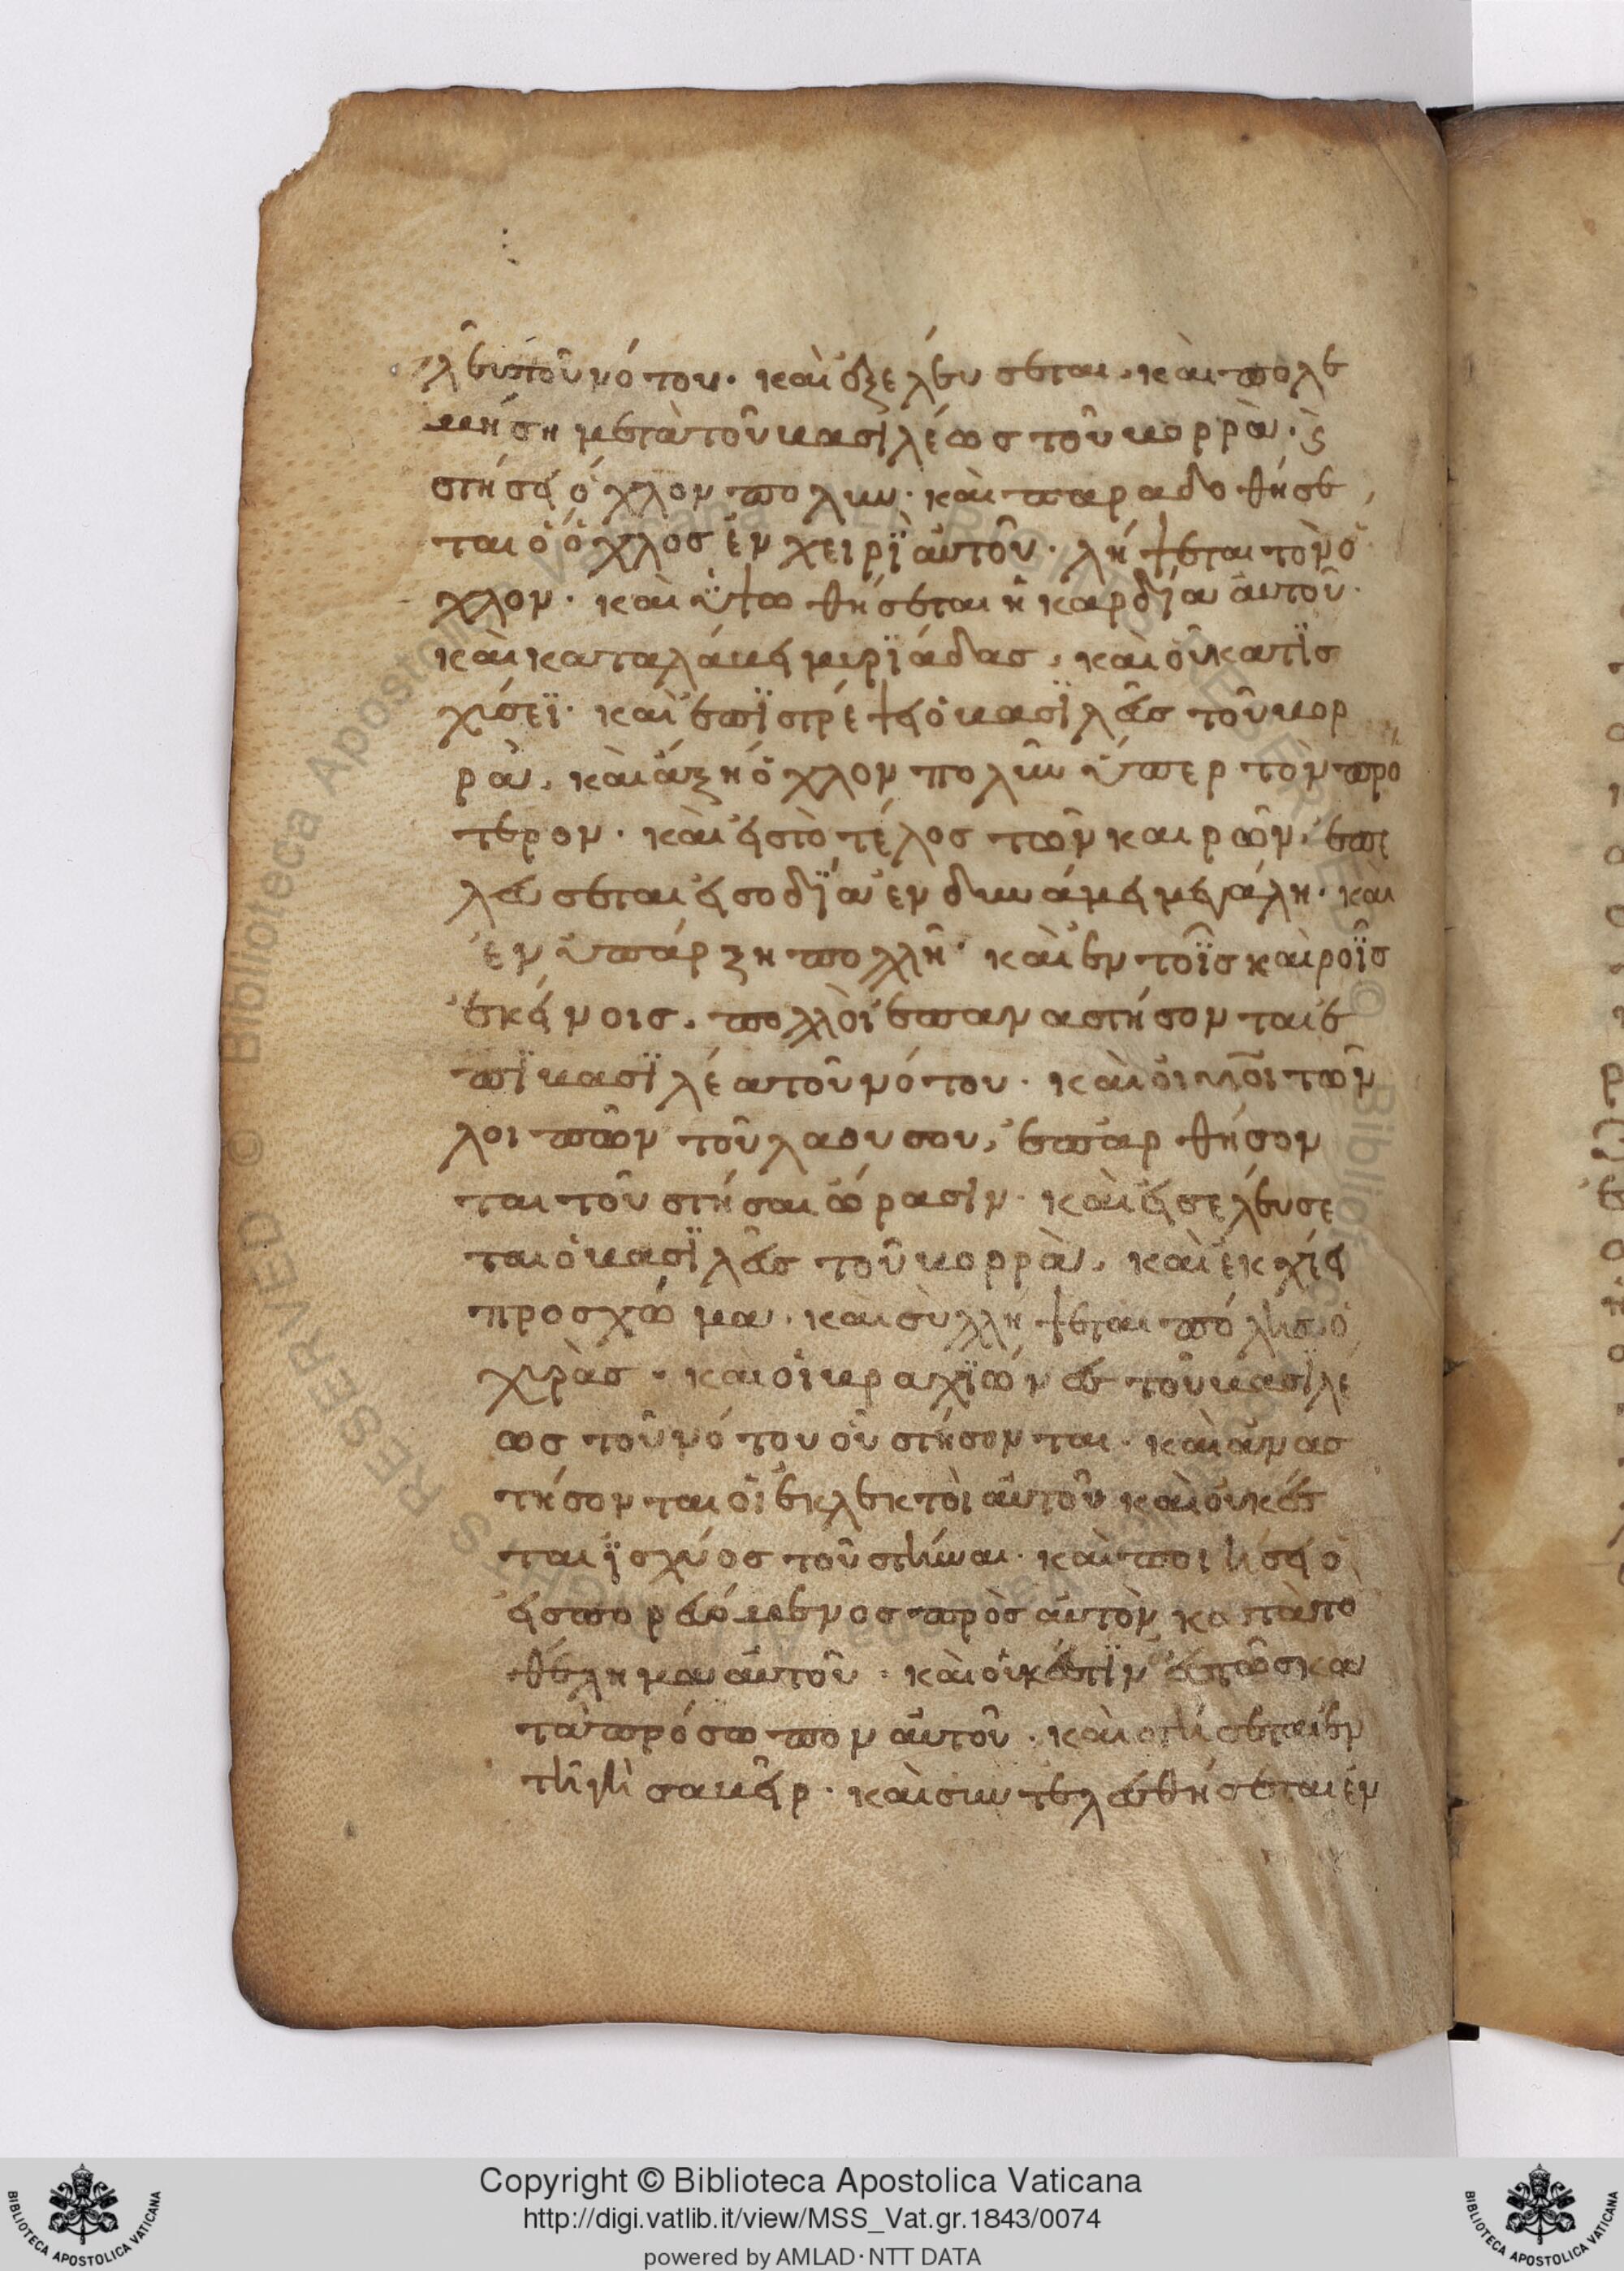 λευστοῦ νότου· καὶ ἐξελεύσεται, καὶ πολε
μήση μετὰ τοῦ βασϊλέωσ τοῦ βορρᾶ· ϛ̀
στήσει όχλον πολυν· καὶ παραδοθήσε
ται ὁ όχλοσ ἐν χειρῒ αὐτοῦ· λήψεται τὸν ὄ
χλον· καὶ ὑψωθήσεται ἡ καρδία αὐτοῦ·
καὶ καταλάβει μυρϊάδασ, καὶ οὐ κατϊσ
χύσεϊ· καὶ ἐπϊστρέψει ὁ βασϊλεῦσ τοῦ βορ
ρᾶ, καὶ άξη όχλον πολὺν ὑπερ τὸν προ
τερον· καὶ εἰσ τὸ τέλοσ τῶν καιρῶν, ἐπε
λεύσεται εἰσοδΐα ἐν δυνάμει μεγάλη· καὶ
ἐν ὑπάρξη πολλῆ· καὶ ἐν τοῖσ καιροῖσ
ἐκείνοισ, πολλοὶ ἐπαναστήσονται ἐ
πϊ βασϊλέα τοῦ νότου· καὶ οἱ υἱοὶ τῶν
λοιπῶν τοῦ λαου σου, ἐπαρθήσον
ται τοῦ στήσαι ὅρασϊν· καὶ εἰσελεύσε
ται ὁ βασϊλεῦσ τοῦ βορρᾶ, καὶ ἐκχέει
προσχῶμα· καὶ σὺλλήψεται πόλεισ ὀ
χυρὰσ· καὶ οἱ βραχϊώνεσ τοῦ βασϊλε
ωσ τοῦ νότου οὐ στήσονται· καὶ ἀνασ
τήσονται οἱ ἐκλεκτοὶ αὐτοῦ καὶ οὐκ ἔσ
ται ϊσχύοσ τοῦ στῆναι· καὶ ποιήσει ὁ
εἰσπορευόμενοσ πρὸσ αὐτὸν κατὰ τὸ
θέλημα αὐτοῦ· καὶ οὐκ ἔστϊν ἑστῶσ κα
τὰ πρόσωπον αὐτοῦ· καὶ στήσεται ἐν
τῆ γῆ σαβεὶρ· καὶ συντελεσθήσεται ἐν
Copyright © Biblioteca Apostolica Vaticana
http://digi.vatlib.it/view/MSS_Vat.gr.1843/0074
powered by AMLAD·NTT DATA